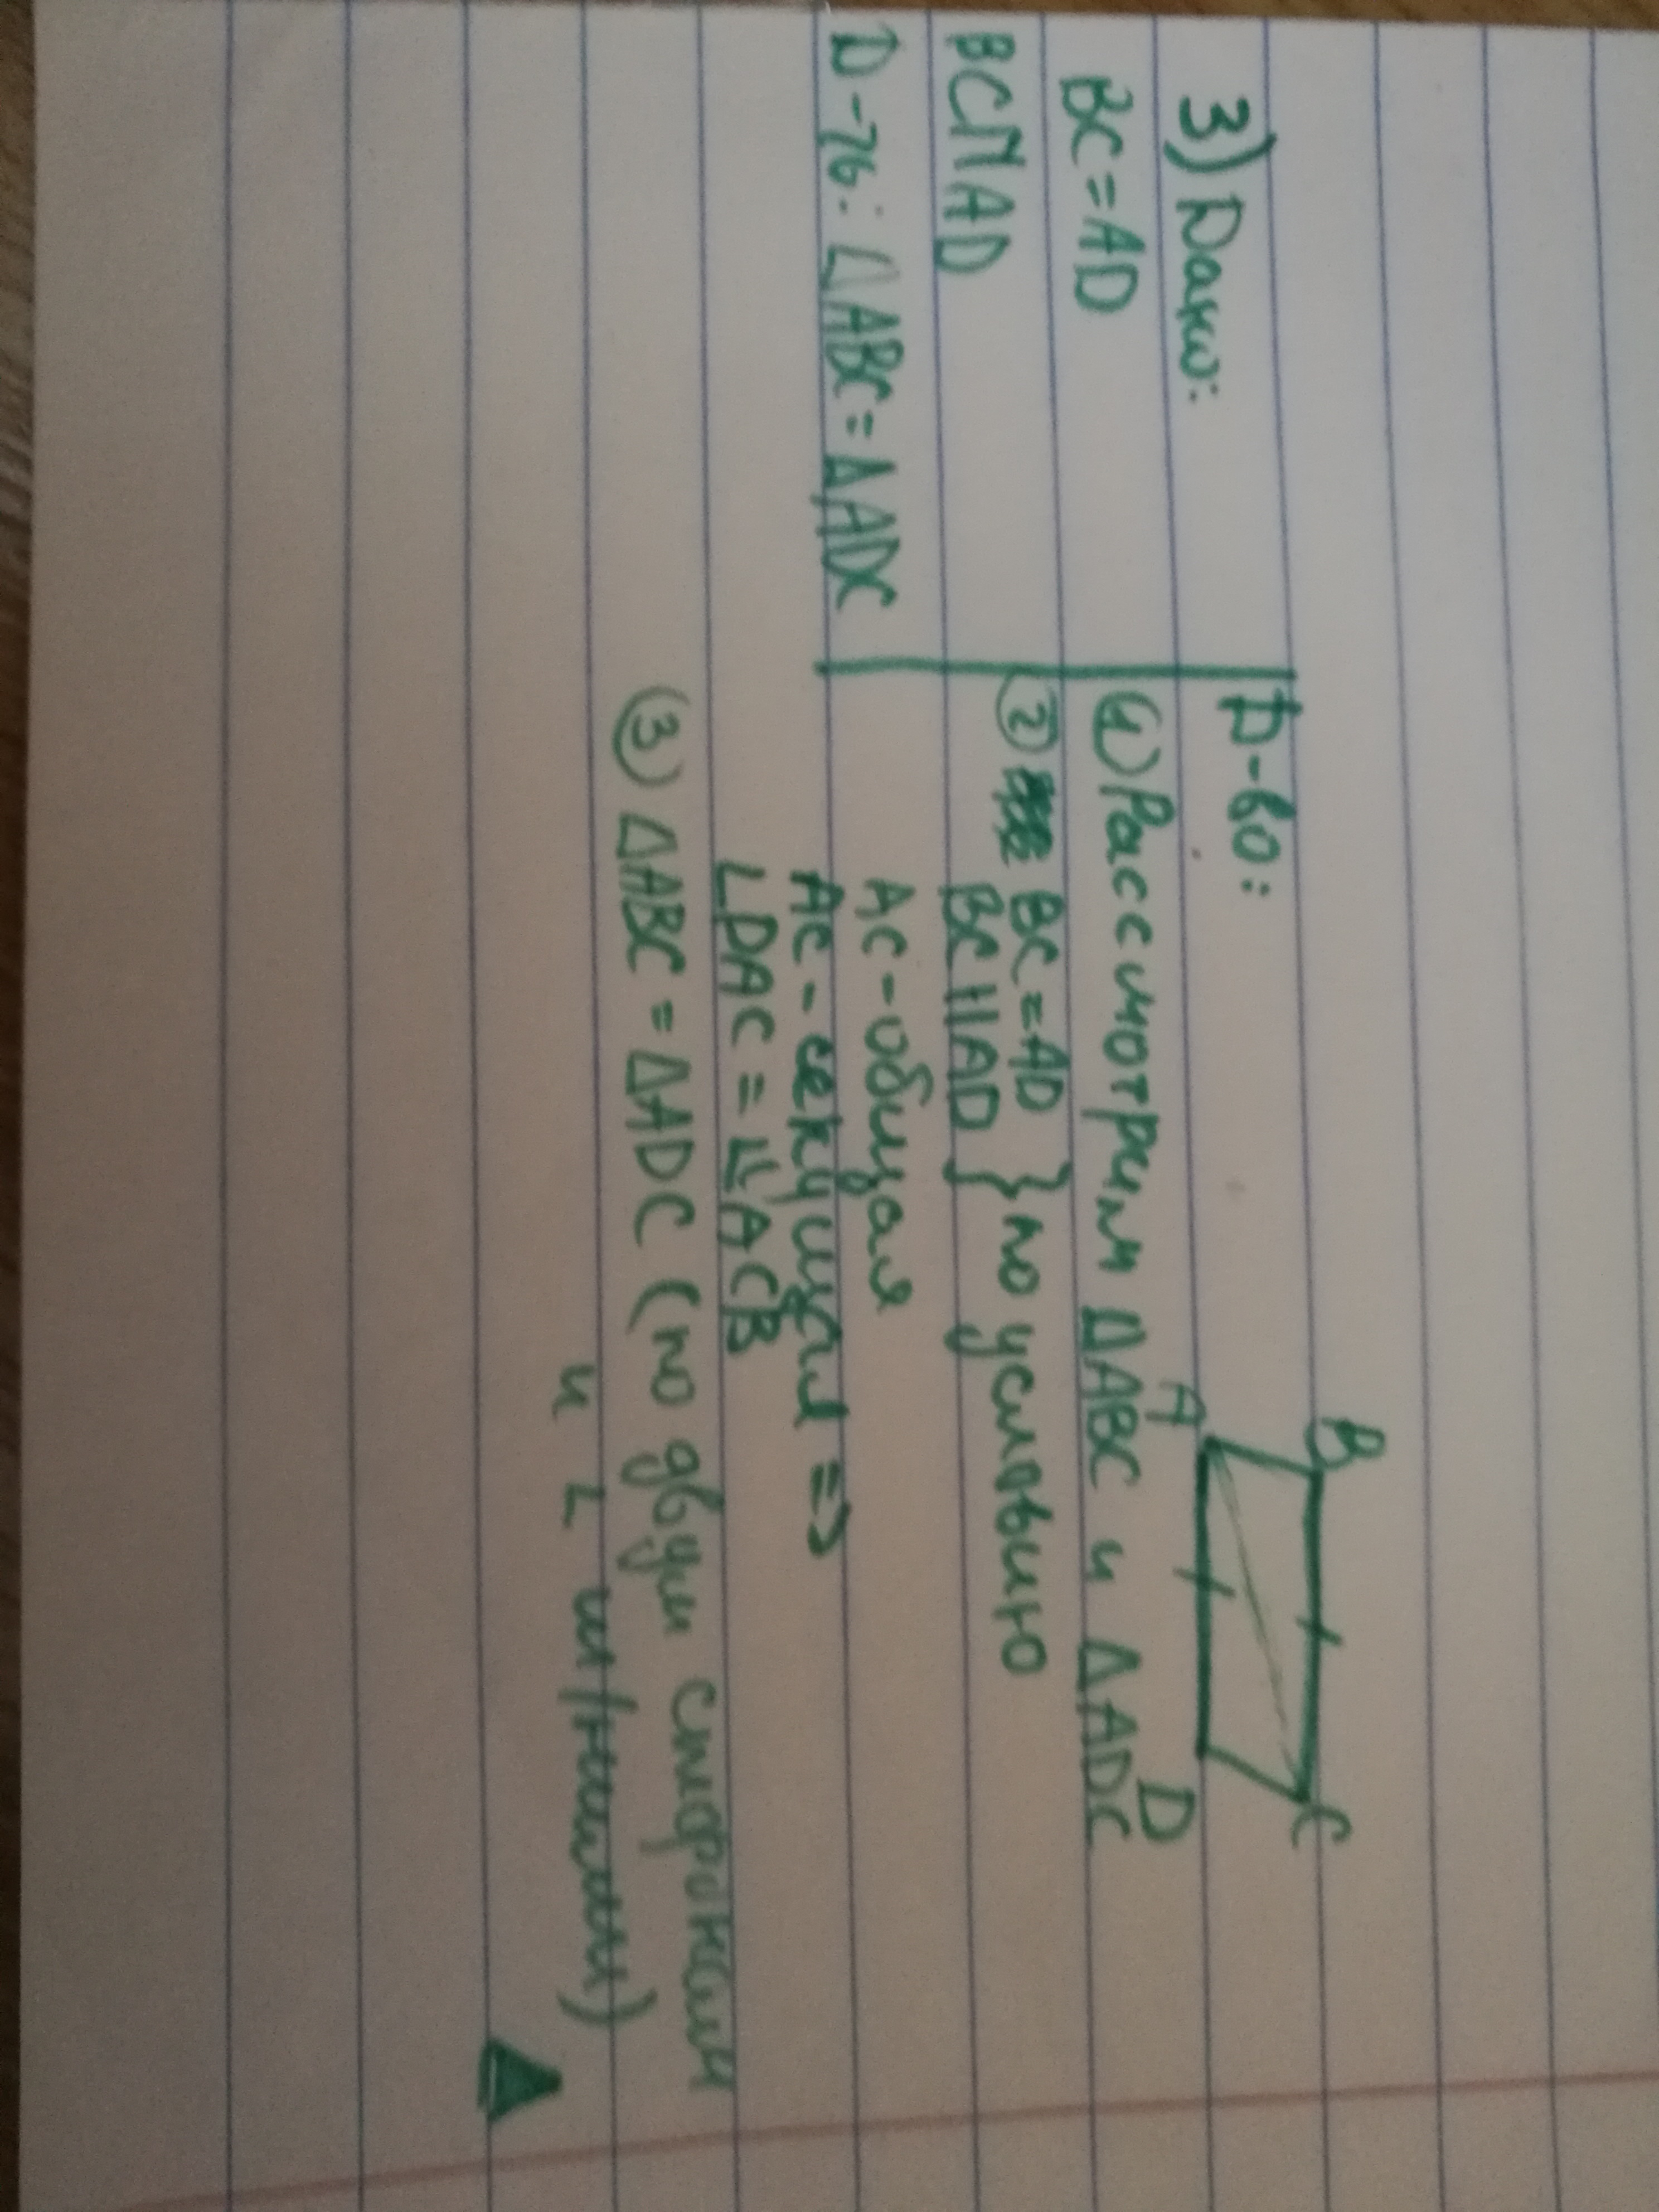 3) Дано:
BC = AD
BC || AD
D-ть: ΔABC = ΔADC
D-во:
B
C
A
D
① Рассмотрим ΔABC и ΔADC
② BC = AD } по условию
BC || AD
AC - общая
AC - секущая =>
∠DAC = ∠ACB
③ ΔABC = ΔADC (по двум сторонам
и ∠ м/ними)